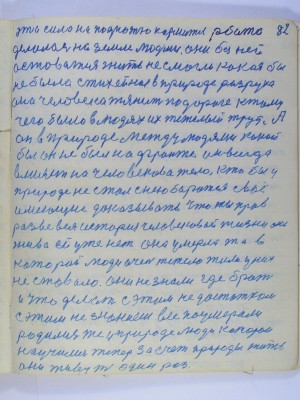 эта сила на подножою кормити работа 82
делолася на земле людми, они без ней
оставатся жить не смогли какая бы
не была стихейная в природе разруха
она человека тянит по дороге к тому
чего было в людях их тяжелый труд. А
он в природе между людями какой
бы он не был на фронте он всегда
влияет на человекова тело, кто бы у
природе не стал с нею боротся своё
имеющие доказывать что ты прав
разве вся история человековой жизни он
жива ей уже нет она умерла та в
которой люди очен тежело жили у них
не ставало. они не знали где брат
и что делат с этим недостатком
с этим не знанием все поумерали
родилис же у природе люди которой
научилис тепер за счёт природы жить
они живут один раз.